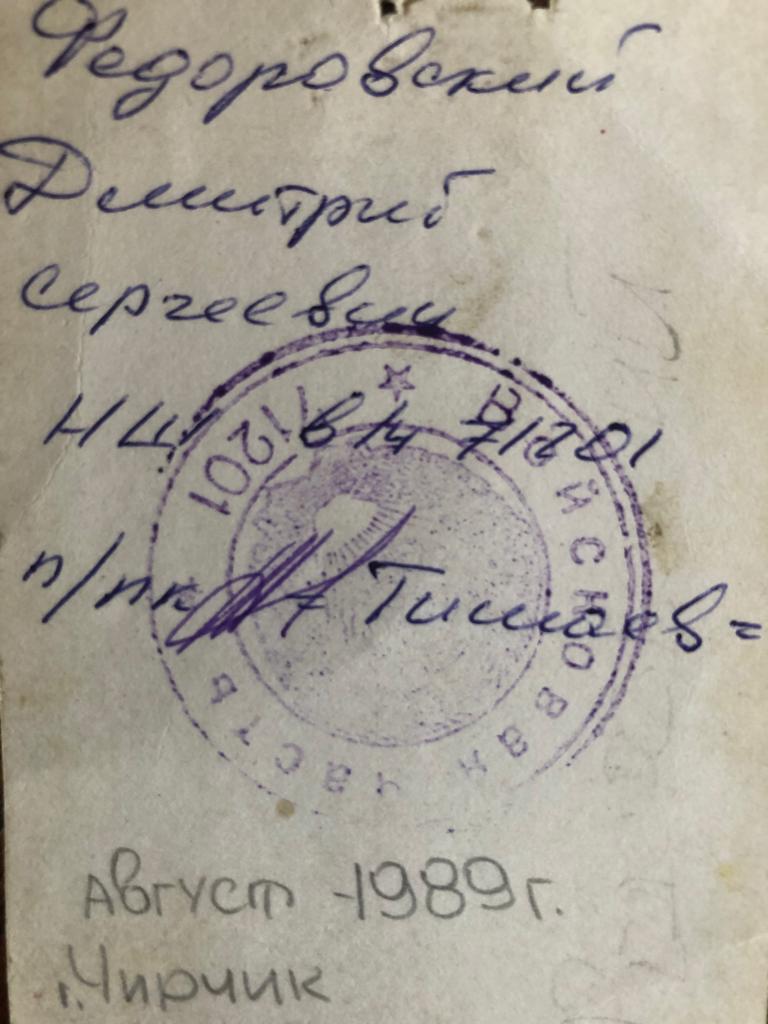 Федоровский
Дмитрий
Сергеевич
НШ в/ч 71201
п/пк Тимаев
ВОЙСКОВАЯ ЧАСТЬ
71201
АВГУСТ - 1989 г.
г. Чирчик